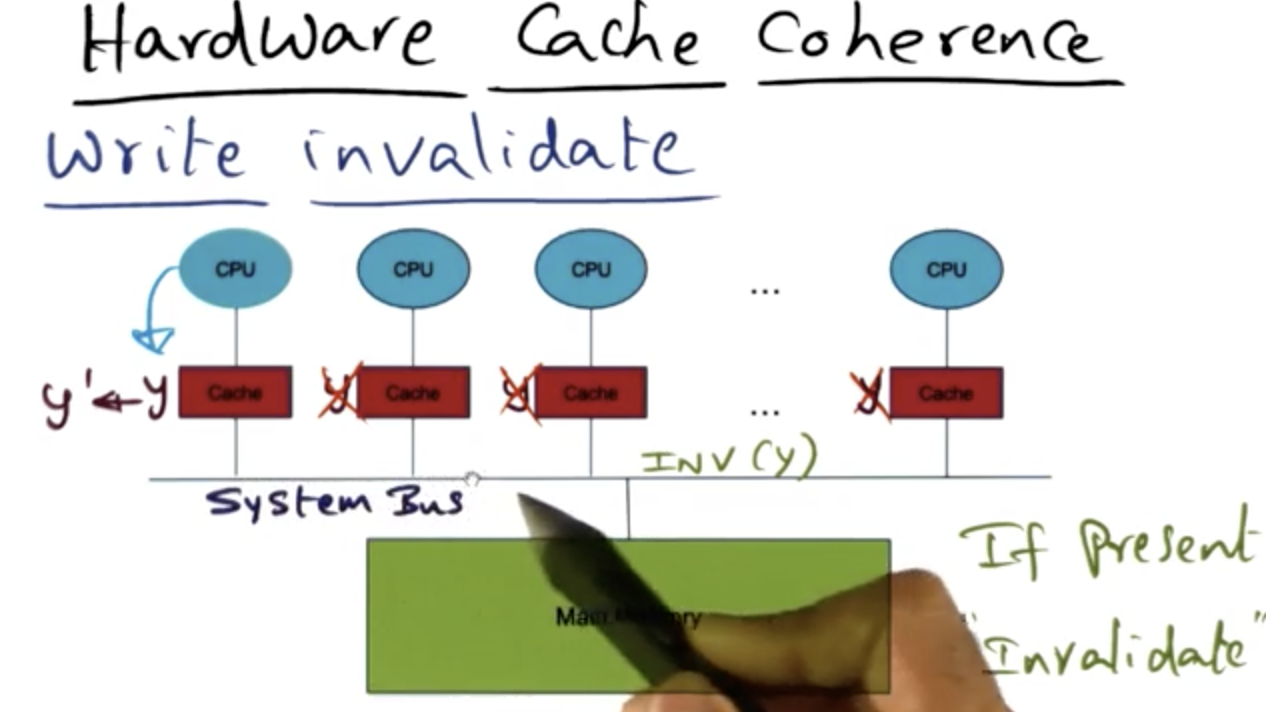 Hardware Cache Coherence
Write invalidate
CPU CPU CPU ... CPU
y' ← y Cache y Cache y Cache ... y Cache
INV (Y)
System Bus
If present
Main
"Invalidate"